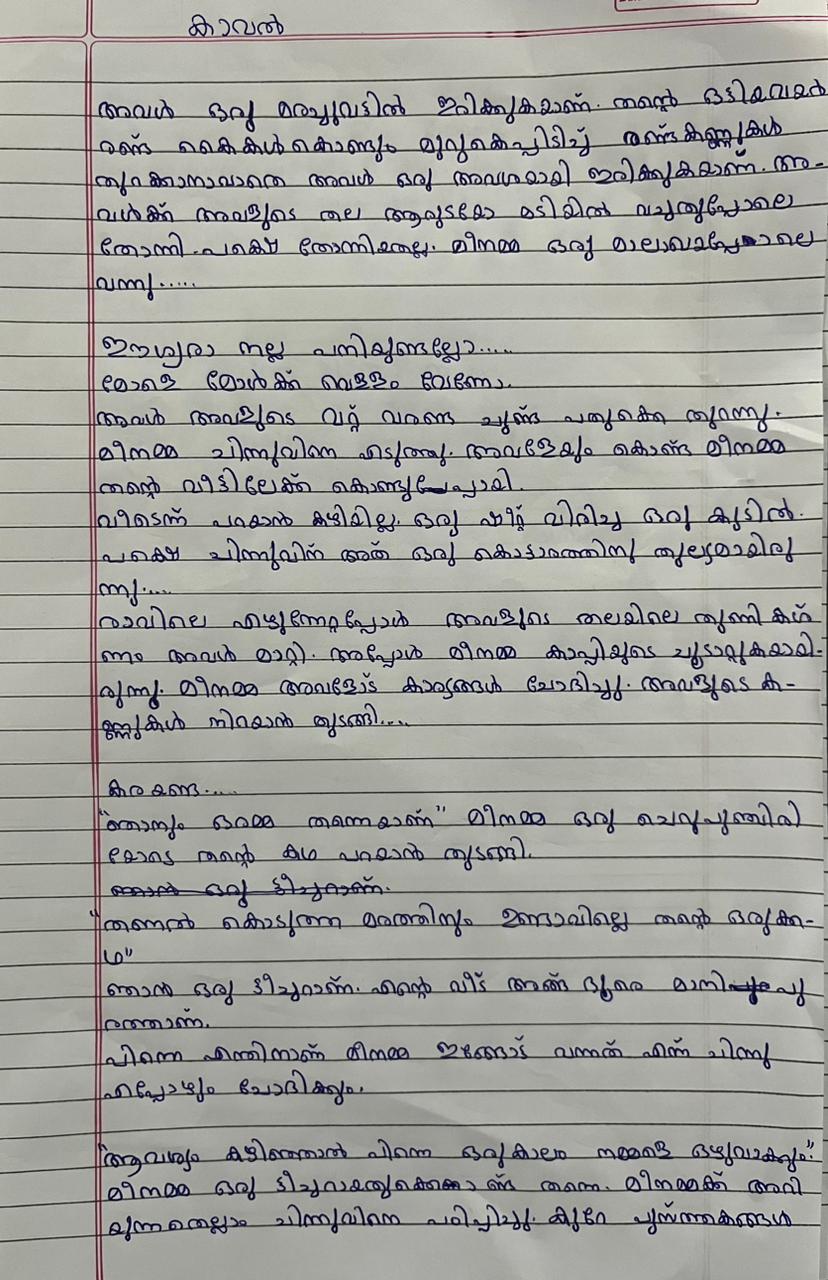 കാവൽ
അവൾ ഒരു മരച്ചുവടിൽ ഇരിക്കുകയാണ്. തന്റെ ഒട്ടിയവയർ
രണ്ട് കൈകൾകൊണ്ടും മുറുകെപ്പിടിച്ച് രണ്ട്കണ്ണുകൾ
തുറക്കാനാവാതെ അവൾ ഒരു അവശയായി ഇരിക്കുകയാണ്. അ-
വൾക്ക് അവളുടെ തല ആരുടയോ മടിയിൽ വച്ചതുപ്പോലെ
തോന്നി. പക്ഷെ തോന്നിയതല്ല. മീനമ്മ ഒരു മാലാഖപ്പോലെ
വന്നു.....
ഈശ്വരാ നല്ല പനിയുണ്ടല്ലോ.....
മോളെ മോൾക്ക് വെള്ളം വേണോ.
അവൾ അവളുടെ വറ്റ് വരണ്ട ചുണ്ട് പതുക്കെ തുറന്നു.
മീനമ്മ ചിന്നുവിനെ എടുത്തു. അവളേയും കൊണ്ട് മീനമ്മ
തന്റെ വീട്ടിലേക്ക് കൊണ്ടുപ്പോയി.
വീടെന്ന് പറയാൻ കഴിയില്ല. ഒരു ഷീറ്റ് വിരിച്ച ഒരു കുടിൽ.
പക്ഷെ ചിന്നുവിന് അത് ഒരു കൊട്ടാരത്തിനു തുല്യമായിരു
ന്നു....
രാവിലെ എഴുന്നേറ്റപ്പോൾ അവളുടെ തലയിലെ തുണി കഷ്
ണം അവൾ മാറ്റി. അപ്പോൾ മീനമ്മ കാപ്പിയുടെ ചൂടാറ്റുകയായി-
രുന്നു. മീനമ്മ അവളോട് കാര്യങ്ങൾ ചോദിച്ചു. അവളുടെ ക-
ണ്ണുകൾ നിറയാൻ തുടങ്ങി....
കരയണ്ട....
"ഞാനും ഒരമ്മ തന്നെയാണ്" മീനമ്മ ഒരു ചെറുപുഞ്ചിരി
യോടെ തന്റെ കഥ പറയാൻ തുടങ്ങി.
ഞാൻ ഒരു ടീച്ചറാണ്.
"തണൽ കൊടുത്ത മരത്തിനും ഉണ്ടാവില്ലെ തന്റെ ഒരു ക-
ഥ"
ഞാൻ ഒരു ടീച്ചറാണ്. എന്റെ വീട് അങ്ങ് ദൂരെ മാനിപു
രത്താണ്.
പിന്നെ എന്തിനാണ് മീനമ്മ ഇങ്ങോട്ട് വന്നത് എന്ന് ചിന്നു
എപ്പോഴും ചോദിക്കും.
"ആവശ്യം കഴിഞ്ഞാൽ പിന്നെ ഒരുകാലം നമ്മളെ ഒഴുവാക്കും."
മീനമ്മ ഒരു ടീച്ചറായതുകൊണ്ട് തന്നെ. മീനമ്മക്ക് അറി
യുന്നതെല്ലാം ചിന്നുവിനെ പഠിപ്പിച്ചു. കുറേ പുസ്തകങ്ങൾ